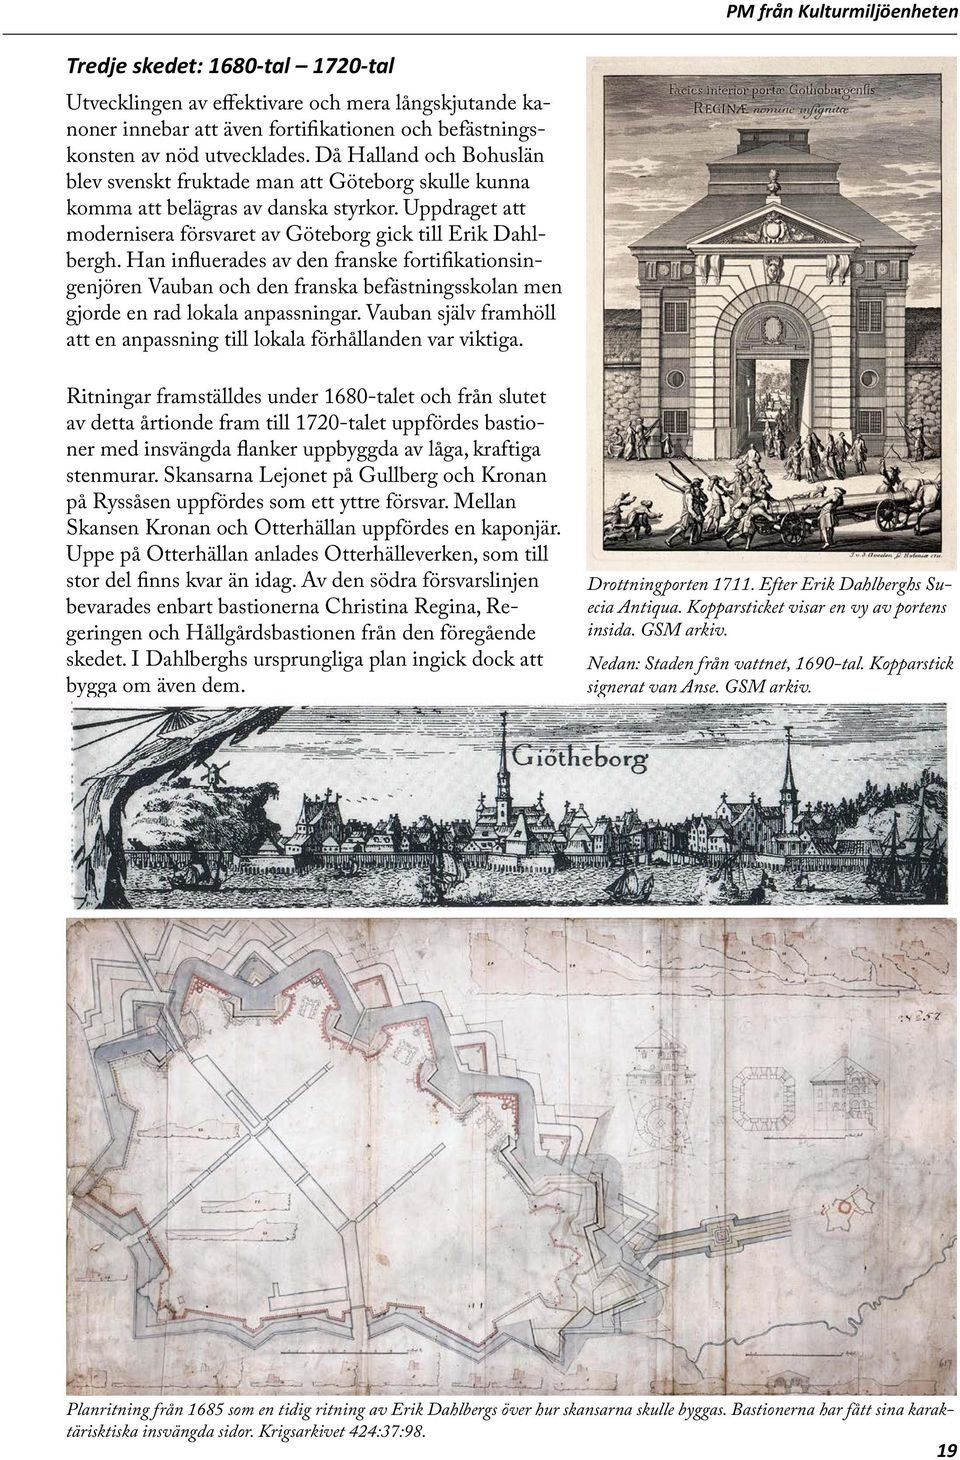 PM från Kulturmiljöenheten
Tredje skedet: 1680-tal – 1720-tal
Utvecklingen av effektivare och mera långskjutande ka-
noner innebar att även fortifikationen och befästnings-
konsten av nöd utvecklades. Då Halland och Bohuslän
blev svenskt fruktade man att Göteborg skulle kunna
komma att belägras av danska styrkor. Uppdraget att
modernisera försvaret av Göteborg gick till Erik Dahl-
bergh. Han influerades av den franske fortifikationsin-
genjören Vauban och den franska befästningsskolan men
gjorde en rad lokala anpassningar. Vauban själv framhöll
att en anpassning till lokala förhållanden var viktiga.
Ritningar framställdes under 1680-talet och från slutet
av detta årtionde fram till 1720-talet uppfördes bastio-
ner med insvängda flanker uppbyggda av låga, kraftiga
stenmurar. Skansarna Lejonet på Gullberg och Kronan
på Ryssåsen uppfördes som ett yttre försvar. Mellan
Skansen Kronan och Otterhällan uppfördes en kaponjär.
Uppe på Otterhällan anlades Otterhälleverken, som till
stor del finns kvar än idag. Av den södra försvarslinjen
bevarades enbart bastionerna Christina Regina, Re-
geringen och Hållgårdsbastionen från den föregående
skedet. I Dahlberghs ursprungliga plan ingick dock att
bygga om även dem.
Facies interior portæ Gothoburgensis
REGINÆ nomine insignitæ
Drottningporten 1711. Efter Erik Dahlberghs Su-
ecia Antiqua. Kopparsticket visar en vy av portens
insida. GSM arkiv.
Nedan: Staden från vattnet, 1690-tal. Kopparstick
signerat van Anse. GSM arkiv.
Giötheborg
N 257
Planritning från 1685 som en tidig ritning av Erik Dahlbergs över hur skansarna skulle byggas. Bastionerna har fått sina karak-
tärisktiska insvängda sidor. Krigsarkivet 424:37:98.
19